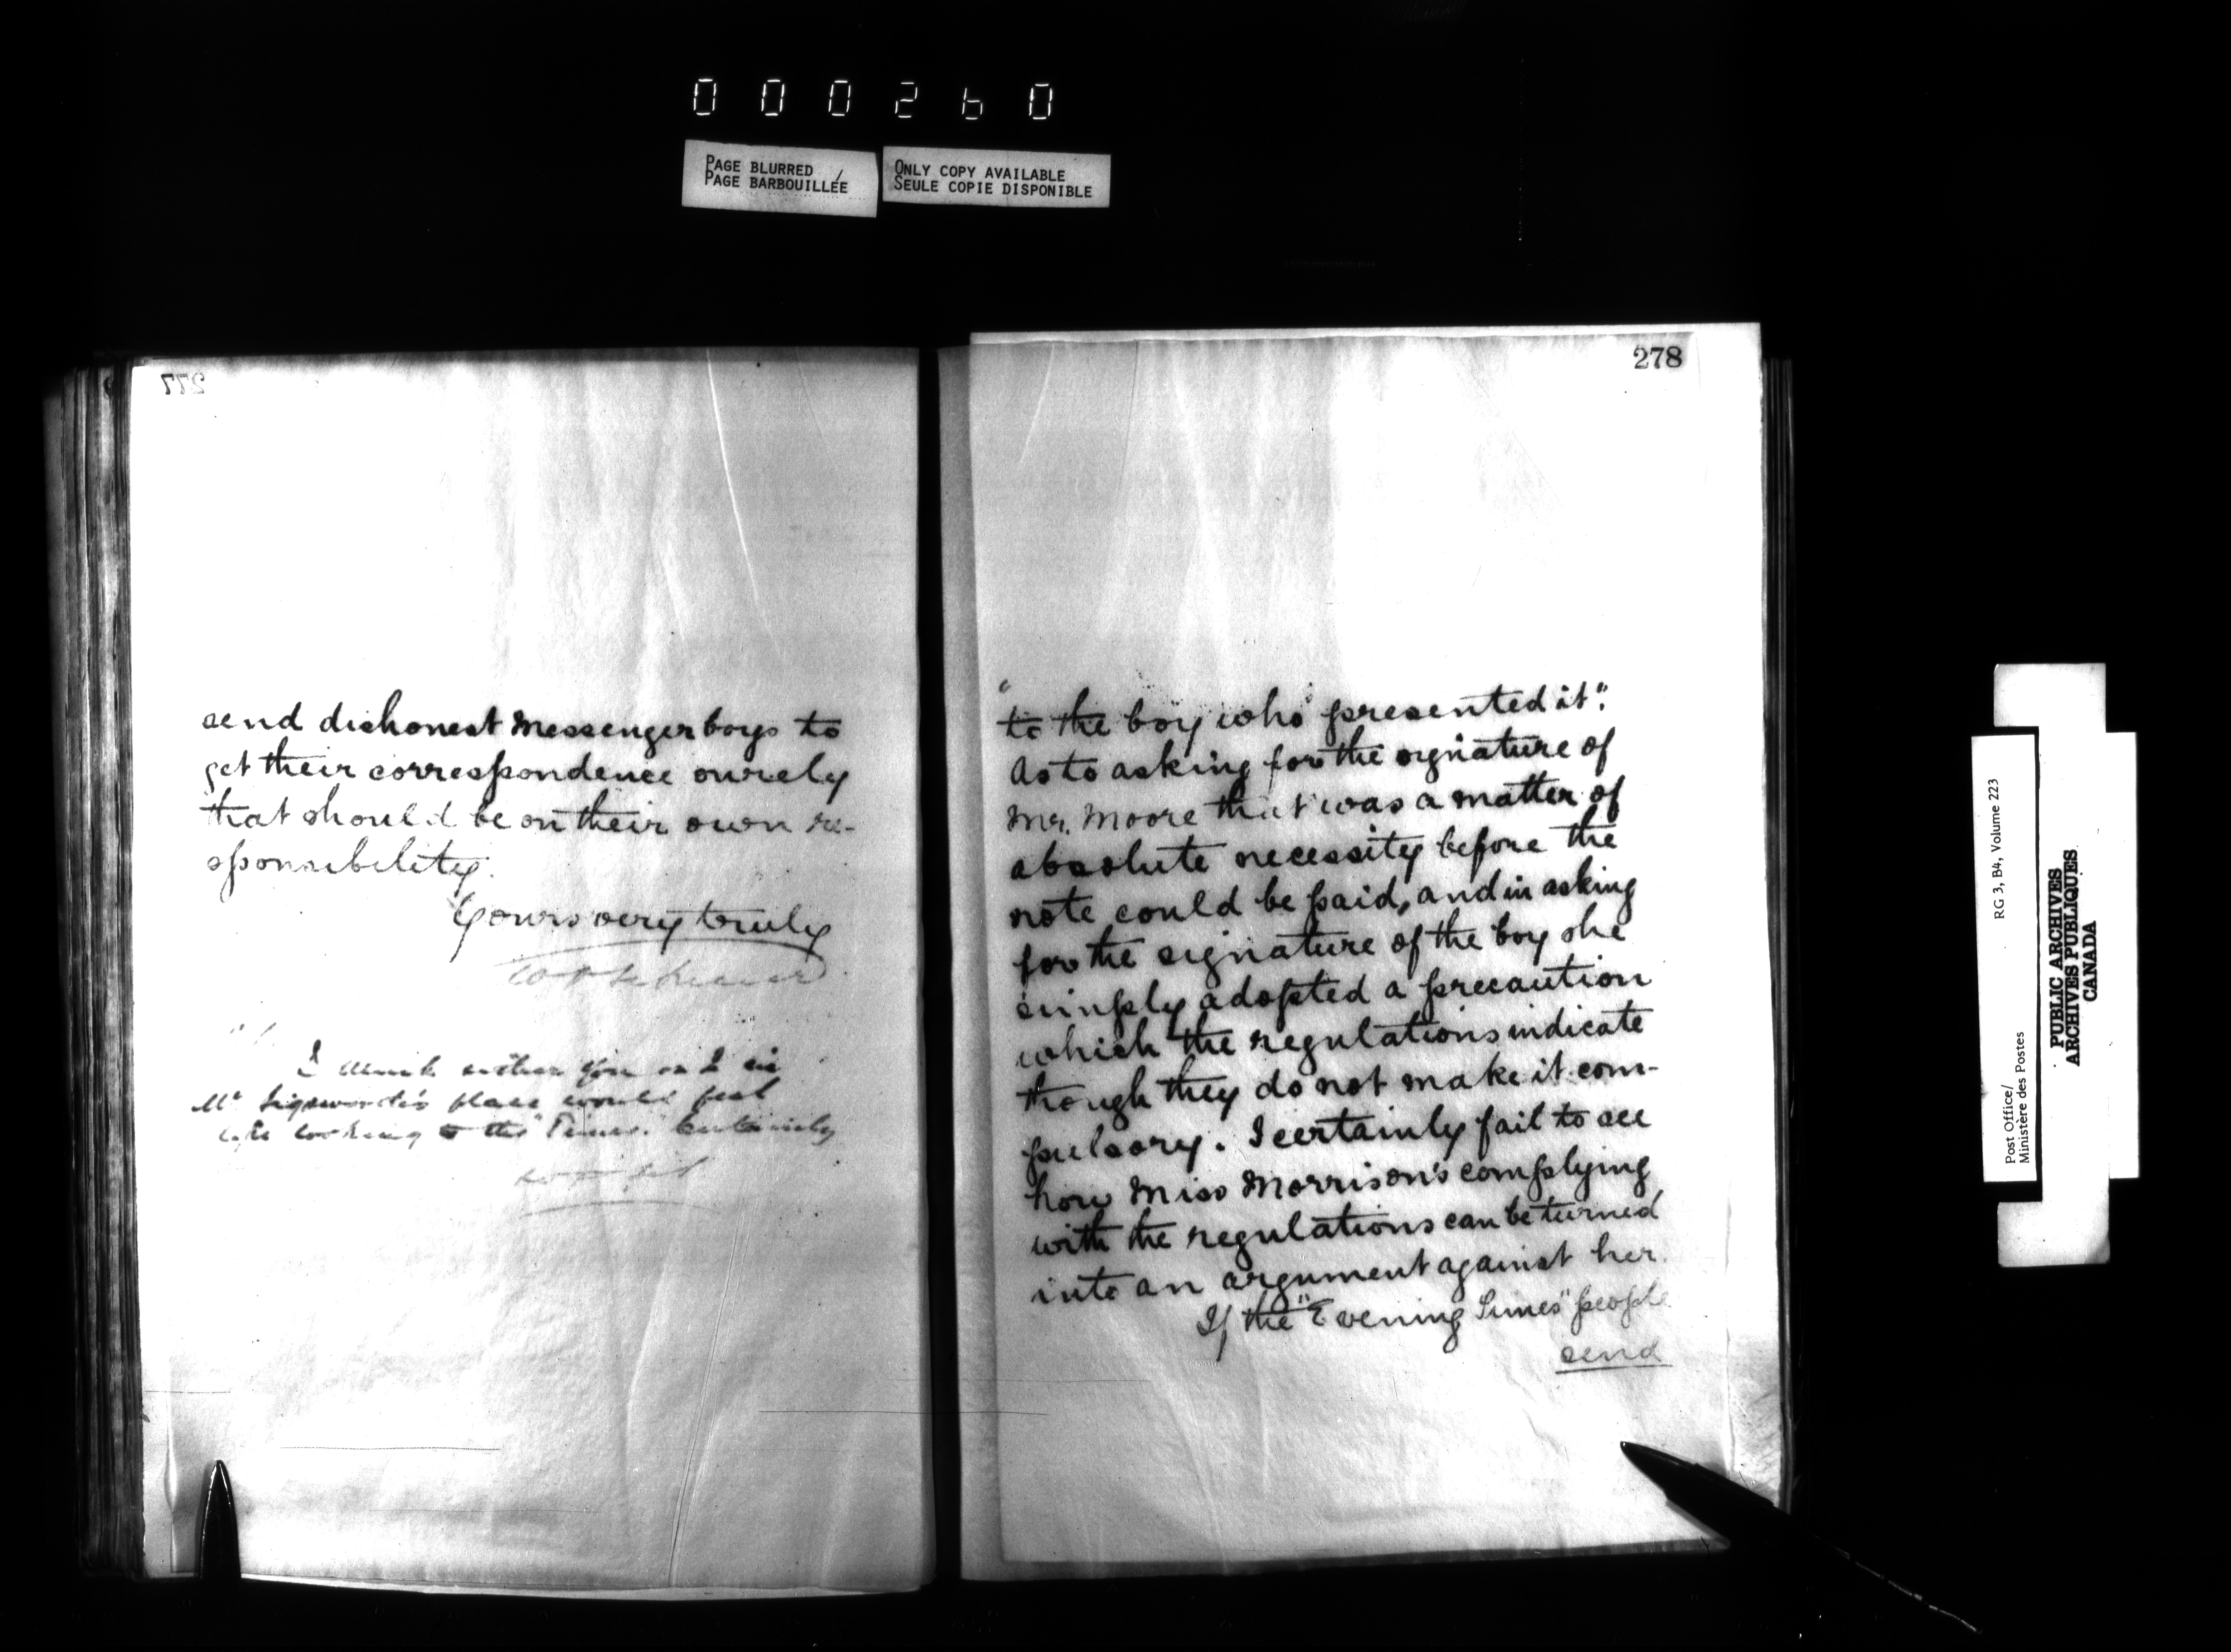 000260
PAGE BLURRED /
PAGE BARBOUILLÉE
ONLY COPY AVAILABLE
SEULE COPIE DISPONIBLE
277
send dishonest Messenger boys to
get their correspondence surely
that should be on their own re-
sponsibility.
Yours very truly
I think either you or I in
Mr Sigsworth's place would feel
like looking to the "Times". Certainly
278
"to the boy who presented it".
As to asking for the signature of
Mr. Moore that was a matter of
absolute necessity before the
note could be paid, and in asking
for the signature of the boy she
simply adopted a precaution
which the regulations indicate
though they do not make it com-
pulsory. I certainly fail to see
how Miss Morrison's complying
with the regulations can be turned
into an argument against her.
If the "Evening Times" people
send
Post Office/
Ministère des Postes
RG 3, B4, Volume 223
PUBLIC ARCHIVES
ARCHIVES PUBLIQUES
CANADA